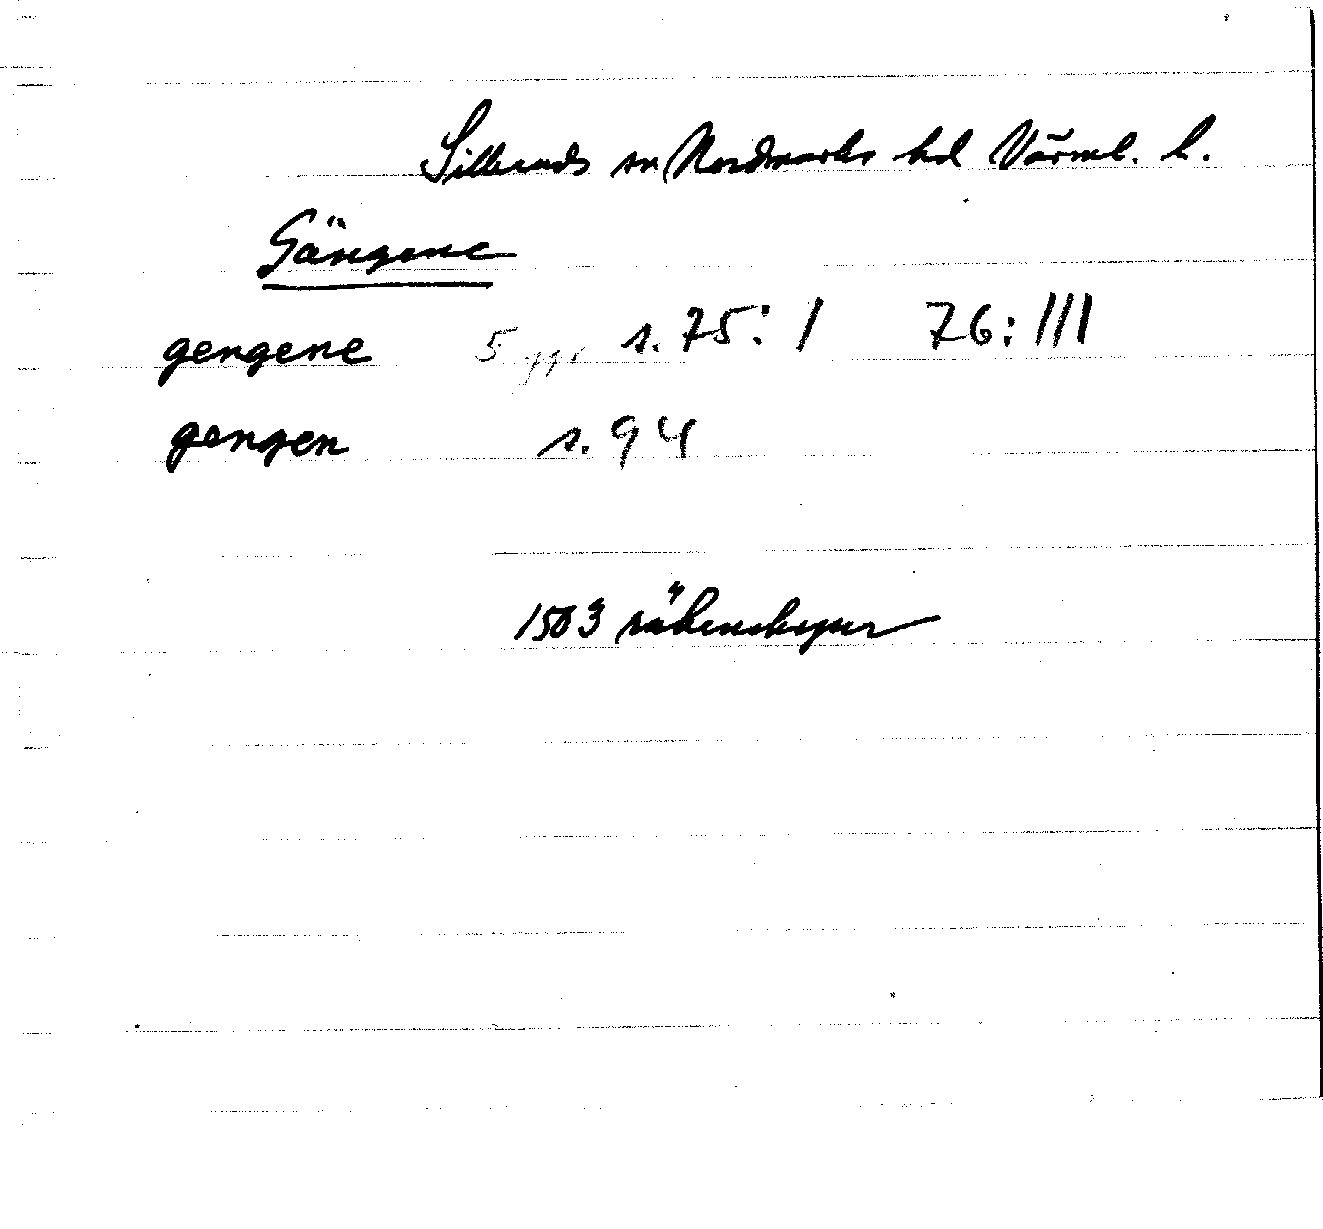 Silleruds sn Nordmarks hd Värml. l.
Gängene
gengene 5 ggr s. 75: I 76: III
gengen s. 94
1503 räkenskaper